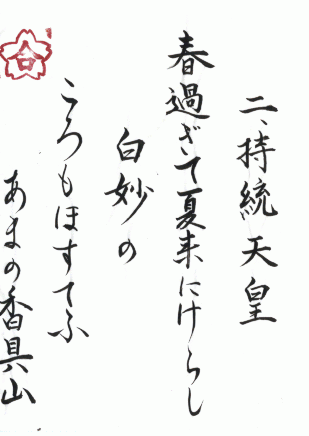 二、持統天皇
春過ぎて夏来にけらし
白妙の
ころもほすてふ
あまの香具山
合